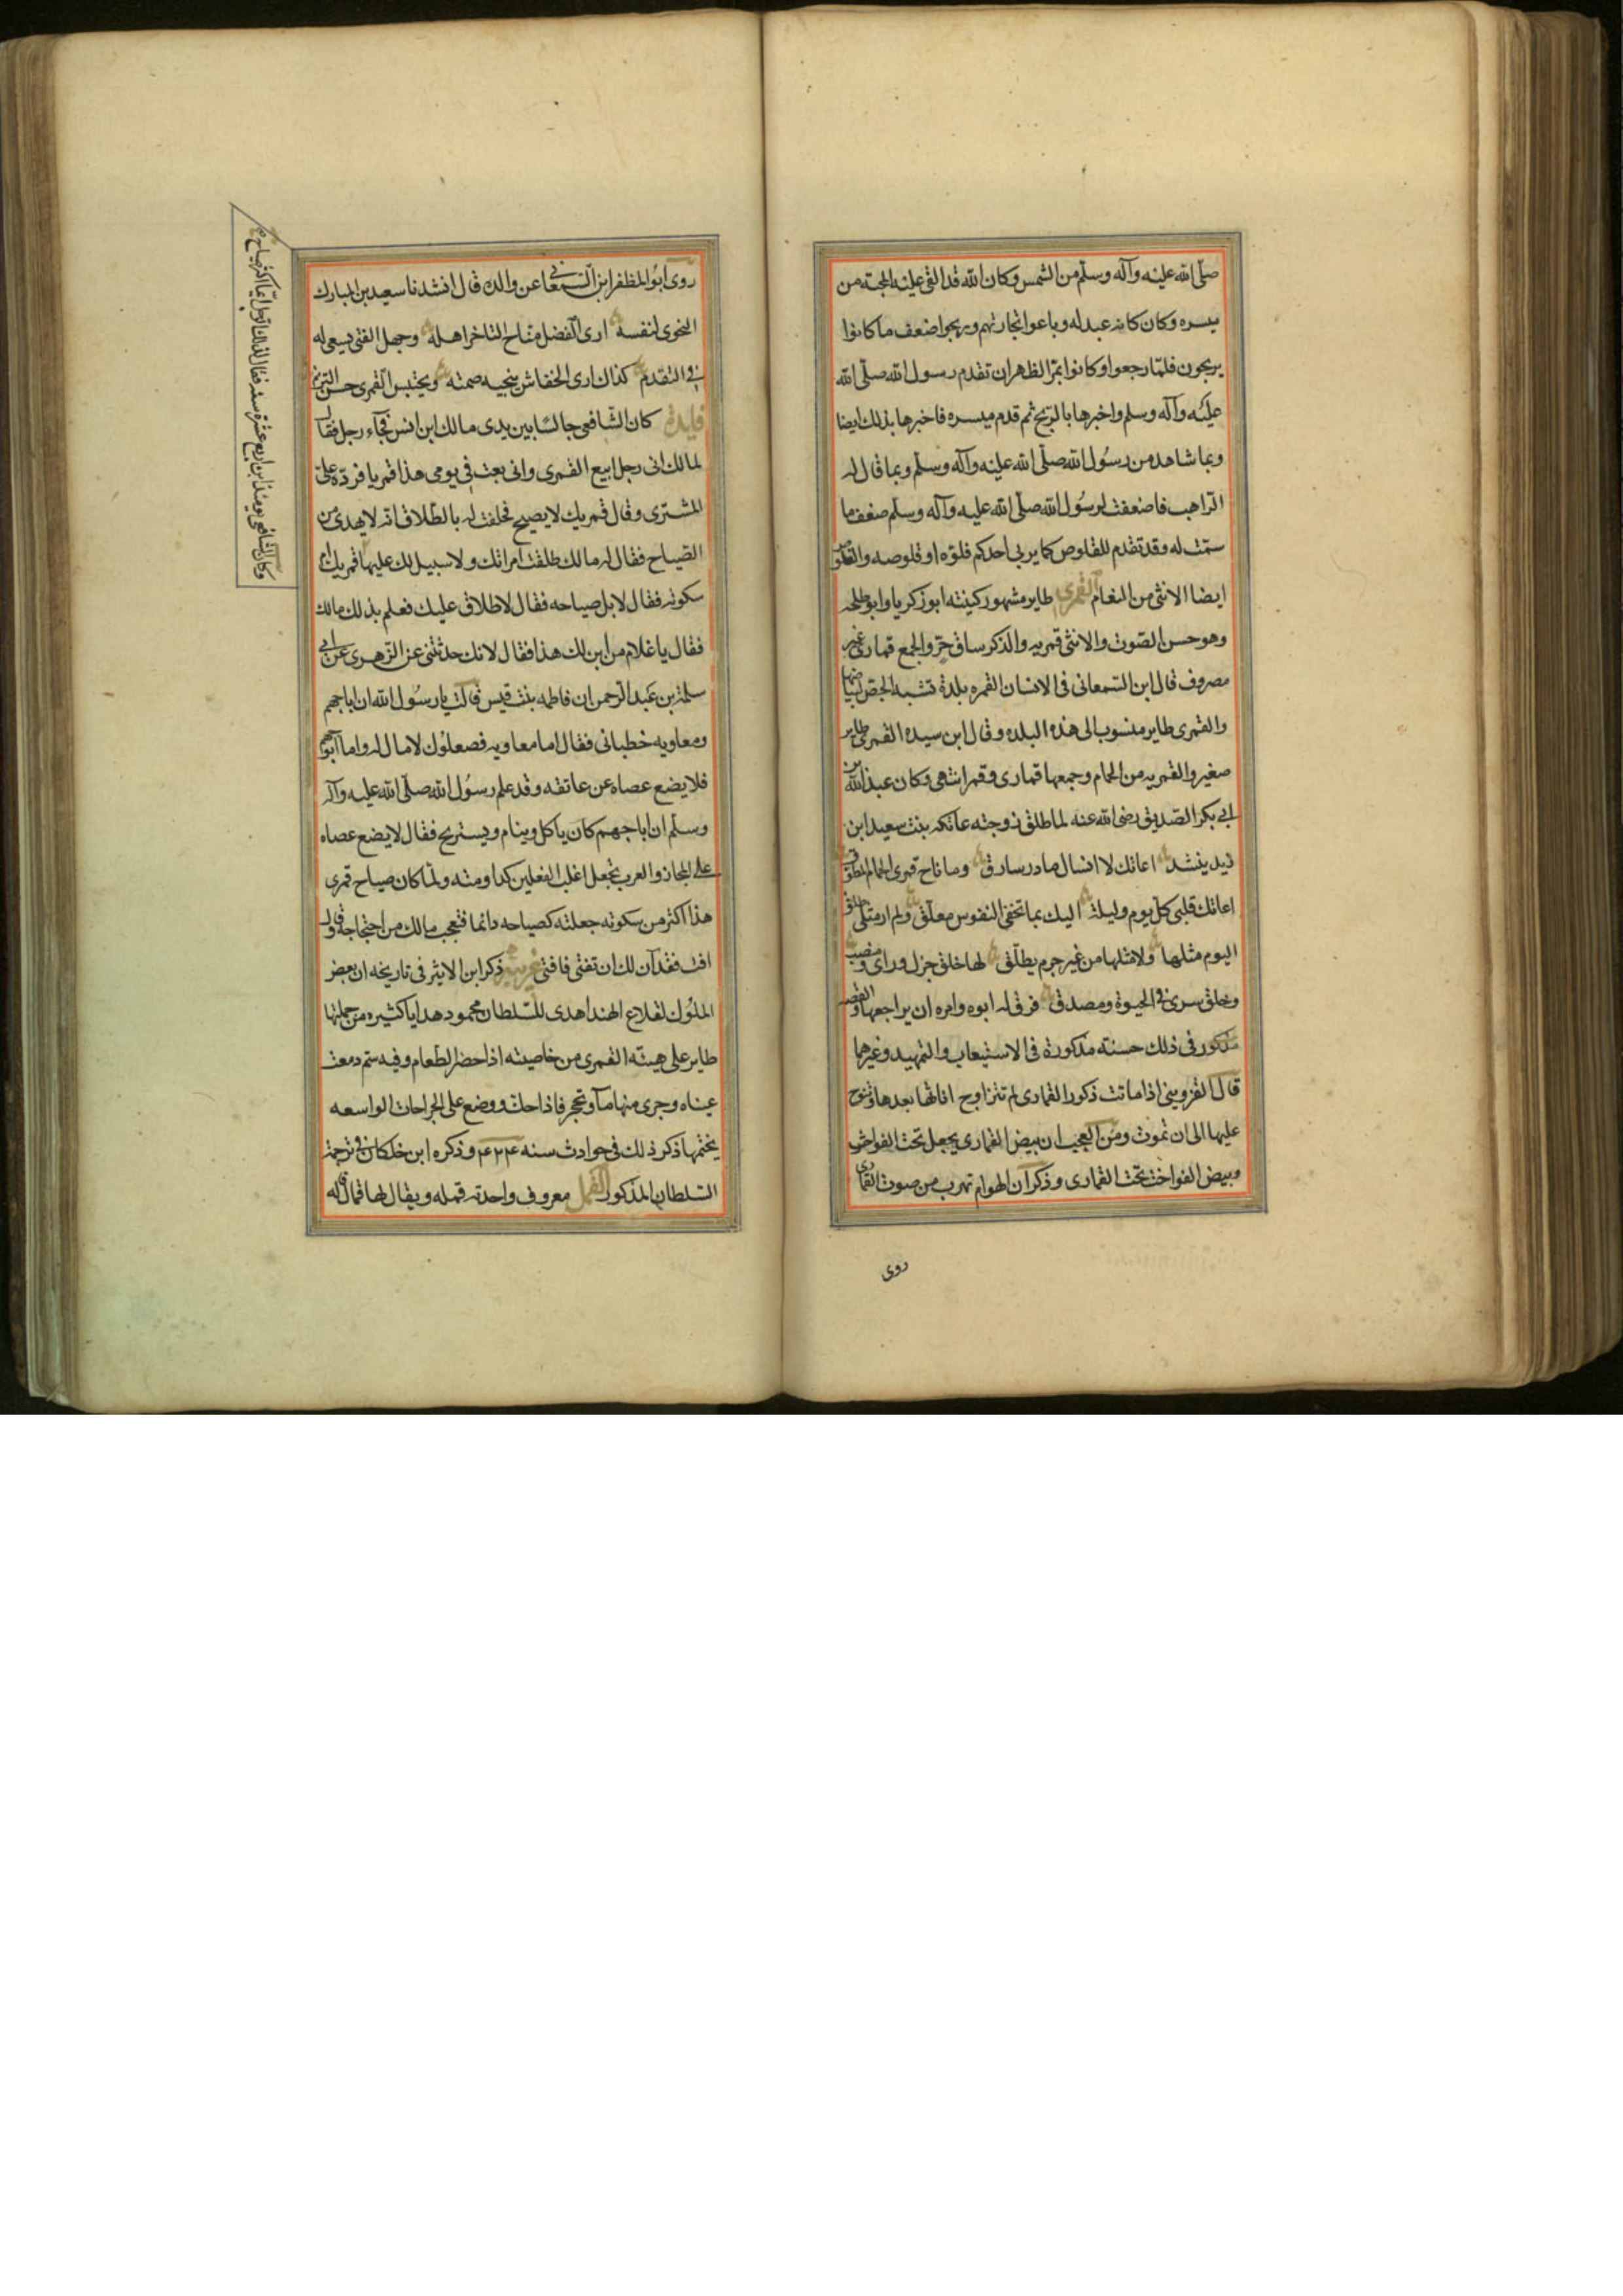 صلّى الله عليه وآله وسلّم من الشمس وكان الله قد القى عليه المحبة من
ميسره وكان كانه عبد له وباعوا تجارتهم وربحوا ضعف ما كانوا
يربحون فلمّا رجعوا وكانوا بمرّ الظهران تقدم رسول الله صلّى الله
عليه وآله وسلم واخبرها بالربح ثم قدم ميسره فاخبرها بذلك ايضا
وبما شاهد من رسُول الله صلّى الله عليه وآله وسلّم وبما قال له
الراهب فاضعفت لرسُول الله صلّى الله عليه وآله وسلّم ضعف ما
سمّت له وقد تقدم للقلوص كما يربى احدكم فلوّه او قلوصه والقلوص
ايضا الانثى من النعام القمرى طاير مشهور كينته ابو زكريا وابو طلحه
وهو حسن الصّوت والانثى قمريه والذكر ساق حرّ والجمع قمارى غير
مصروف قال ابن السّمعانى فى الانسان القمره بلدة تشبه الجص لبياضها
والقمرى طاير منسوب الى هذه البلده وقال ابن سيده القمرى طاير
صغير والقمريه من الحمام وجمعها قمارى وقمر انتهى وكان عبد الله بن
ابى بكر الصّديق رضى الله عنه لما طلق زوجته عاتكه بنت سعيد ابن
زيد ينشد اعاتك لا انساك ما در سارق وما ناح قمرى الحمام المطوق
اعاتك قلبى كلّ يوم وليلة اليك بما تخفى النفوس معلّق ولم ار مثلى طلق
اليوم مثلها ولا مثلها من غير جرم يطلّق لها خلق جزل وراى ومنصب
وخلق سرىّ فى الحيوة ومصدق فرق له ابوه وامره ان يراجعها والقصه
مذكور فى ذلك حسنه مذكورة فى الاستيعاب والتمهيد وغيرهما
قال القزوينى اذا ماتت ذكور القمارى لم تتزاوج اناثها بعدها وتنوح
عليها الى ان تموت ومن العجب ان بيض القمارى يجعل تحت الفواخت
وبيض الفواخت تحت القمارى وذكر ان الهوام تهرب من صوت القمارى
روى
روى ابو المظفر ابن السّمعانى عن والده قال انشدنا سعيد بن المبارك
النحوى لنفسه ارى الفضل مناح التاخر اهله وجهل الفتى يسعى له
فى التقدم كذاك ارى الخفاش ينجيه صمته ويحتبس القمرى حسن الترنم
فايدة كان الشّافعى جالسًا بين يدى مالك ابن انس فجاء رجل فقال
لمالك انى رجل ابيع القمرى وانى بعت فى يومى هذا قمريا فردّه علىّ
المشترى وقال قمريك لا يصيح فحلفت له بالطلاق انه لا يهدى من
الصّياح فقال له مالك طلقت امراتك ولا سبيل لك عليها
وكان الشافعى يومئذ ابن اربع عشرة سنه فقال لذلك الرجل ايما اكثر صياح
قمريك ام
سكوته فقال لا بل صياحه فقال لا طلاق عليك فعلم بذلك مالك
فقال يا غلام من اين لك هذا فقال لانك حدثتنى عن الزّهرى عن ابى
سلمة بن عبد الرحمن ان فاطمه بنت قيس قالت يا رسُول الله ان ابا جهم
ومعاويه خطبانى فقال اما معاويه فصعلوك لا مال له واما ابو جهم
فلا يضع عصاه عن عاتقه وقد علم رسُول الله صلّى الله عليه وآله
وسلّم ان ابا جهم كان ياكل وينام ويستريح فقال لا يضع عصاه
على المجاز والعرب تجعل اغلب الفعلين كمداومته ولمّا كان صياح قمرى
هذا اكثر من سكوته جعلته كصياحه دائما فتعجب مالك من احتجاجه وقال
افت فقد آن لك ان تفتى فافتى غريبه ذكر ابن الاثير فى تاريخه ان بعض
الملوك لقلاع الهند اهدى للسّلطان محمود هدايا كثيره من جملتها
طاير على هيئة القمرى من خاصيته اذا حضر الطعام وفيه سم دمعت
عيناه وجرى منها مآ وتحجر فاذا حك ووضع على الجراحات الواسعه
يختمها ذكر ذلك فى حوادث سنه ۴۲۴ وذكره ابن خلكان فى ترجمة
السّلطان المذكور القمل معروف واحدته قمله ويقال لها قمال قاله